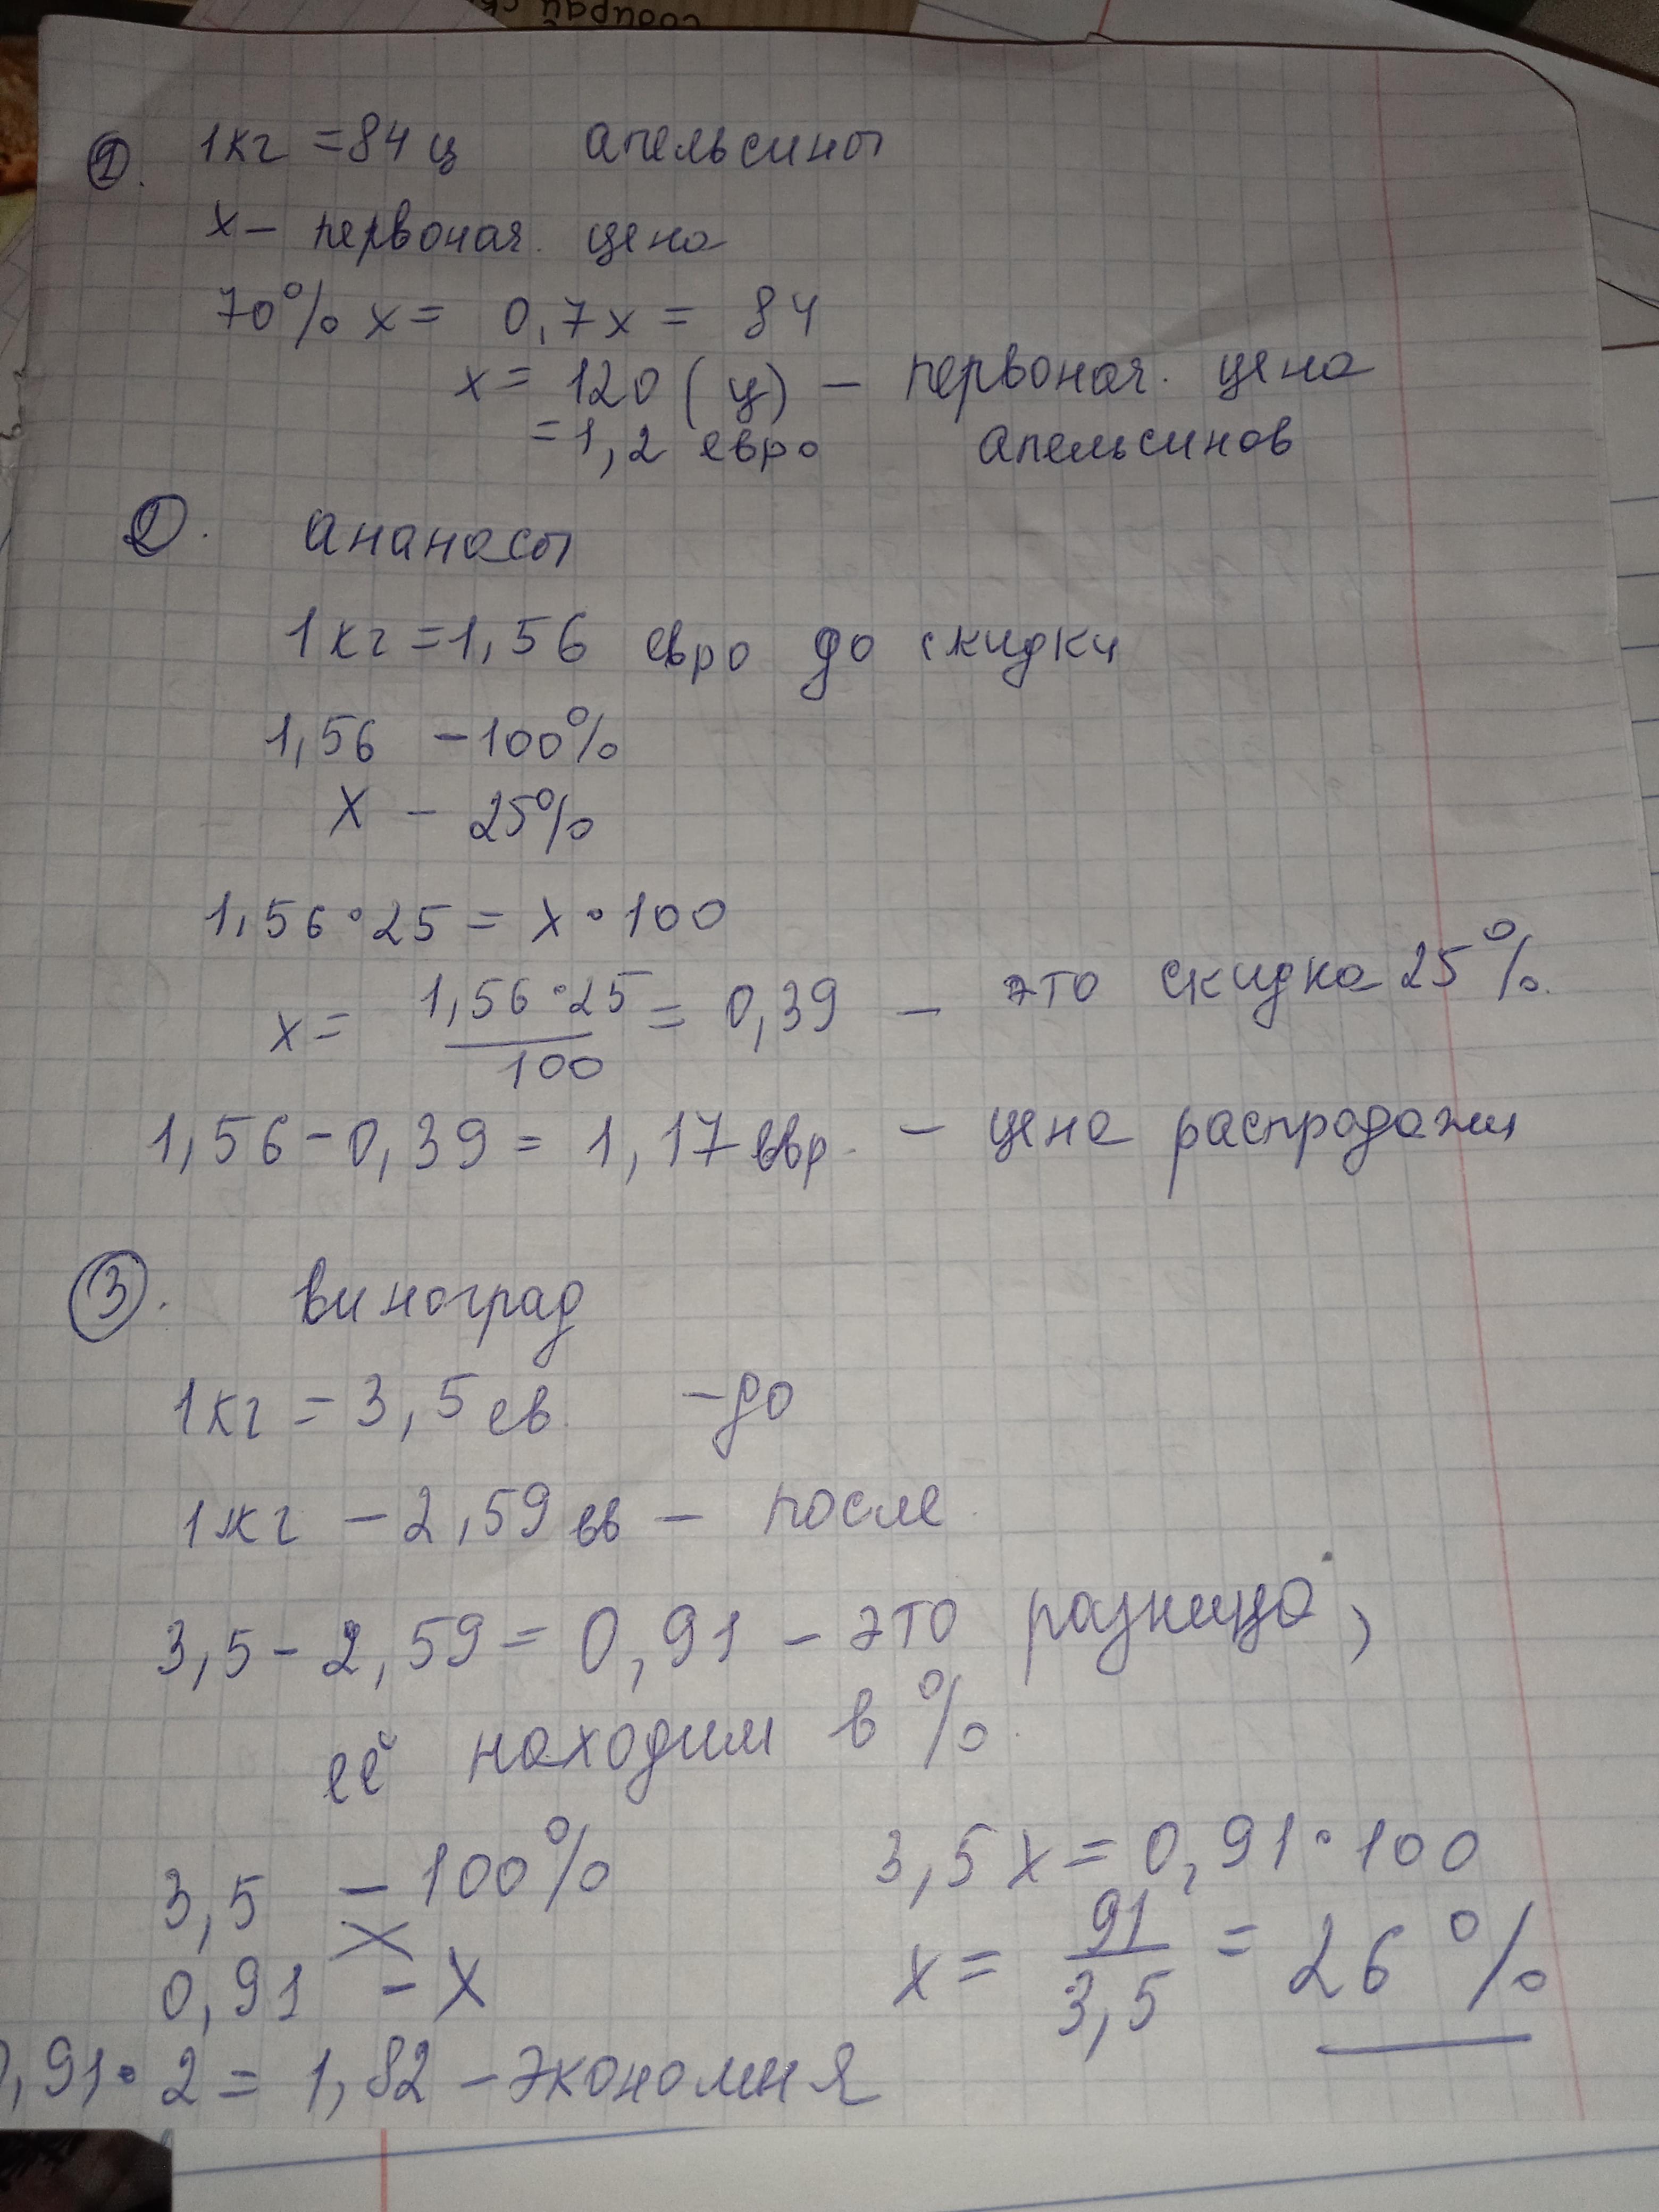 собирай
①. 1кг = 84 ц апельсины
х – первонач. цена
70% х = 0,7х = 84
х = 120 (ц) – первонач. цена
= 1,2 евро апельсинов
②. ананасы
1кг = 1,56 евро до скидки
1,56 – 100%
х – 25%
1,56 · 25 = х · 100
х = 1,56 · 25 / 100 = 0,39 – это скидка 25%.
1,56 – 0,39 = 1,17 евр. – цена распродажи
③. виноград
1кг = 3,5 ев. – до
1кг – 2,59 ев – после
3,5 – 2,59 = 0,91 – это разница,
её находим в %.
3,5 – 100% 3,5х = 0,91 · 100
0,91 – х х = 91 / 3,5 = 26 %
0,91 · 2 = 1,82 – экономия